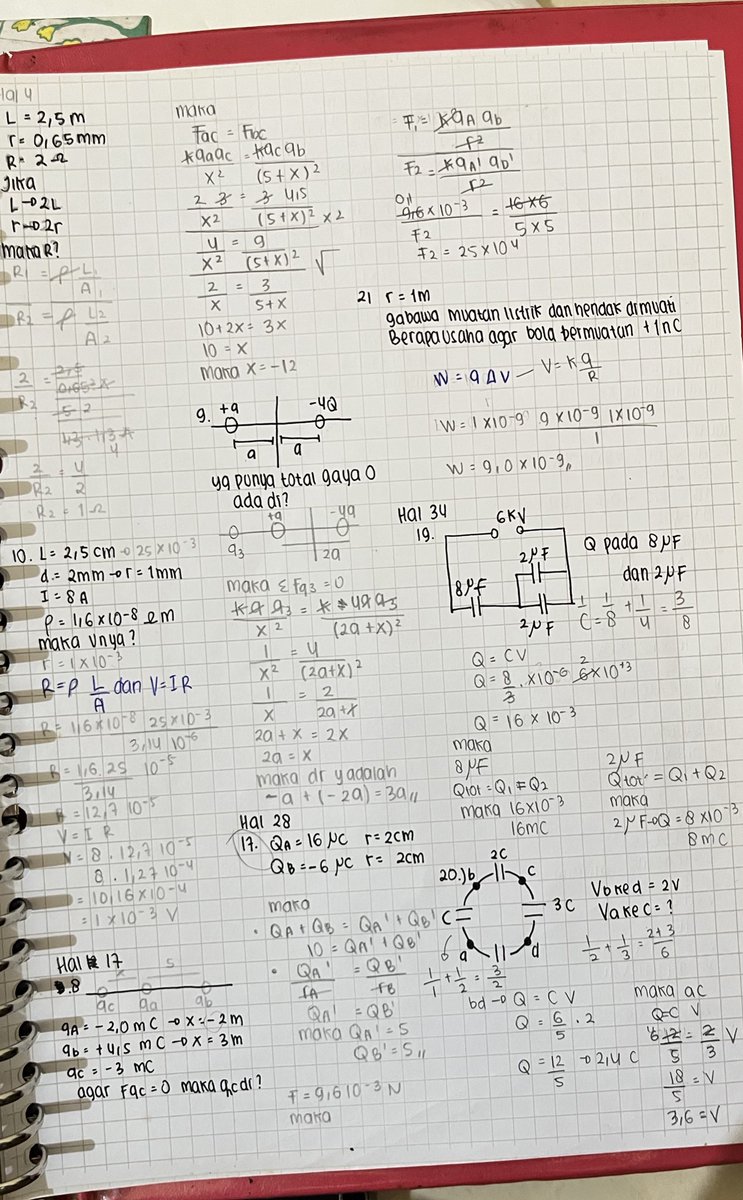 L = 2,5 m
r = 0,65 mm
R = 2 Ω
Jika
L → 2L
r → 2r
maka R?
R1 = ρ L1
A1
R2 = ρ L2
A2
2
R2
2 = 4
R2 2
R2 = 1 Ω
10. L = 2,5 cm → 25 × 10⁻³
d = 2mm → r = 1mm
I = 8A
ρ = 1,6 × 10⁻⁸ Ωm
maka Vnya?
r = 1 × 10⁻³
R = ρ L/A dan V = I R
R = 1,6 × 10⁻⁸ 25 × 10⁻³
3,14 10⁻⁶
R = 1,6.25 10⁻⁵
3,14
R = 12,7 10⁻⁵
V = I R
V = 8 . 12,7 10⁻⁵
8 . 1,27 10⁻⁴
= 10,16 × 10⁻⁴
= 1 × 10⁻³ V
Hal 17
8
x 5
qc qa qb
qA = -2,0 mC → x = -2m
qb = +4,5 mC → x = 3m
qc = -3 mC
agar Fqc = 0 maka qc di?
maka
Fac = Fbc
kqaqc = kqcqb
x² (5+x)²
2 3 = 3 4,5
x² (5+x)² × 2
4 = 9
x² (5+x)² √
2 = 3
x 5+x
10+2x = 3x
10 = x
maka x = -12
9. +q -4Q
a a
yg punya total gaya 0
ada di?
+q -4q
q3 2a
maka Σ Fq3 = 0
kq q3 = k 4q q3
x² (2a+x)²
1 = 4
x² (2a+x)²
1 = 2
x 2a+x
2a + x = 2x
2a = x
maka dr y adalah
-a + (-2a) = 3a,,
Hal 28
17. QA = 16 μC r = 2cm
QB = -6 μC r = 2cm
maka
• QA + QB = QA' + QB'
10 = QA' + QB'
• QA' = QB'
rA rB
QA' = QB'
maka QA' = 5
QB' = 5,,
F = 9,6 10⁻³ N
maka
F1 = k qA qb
r²
F2 = k qA' qb'
r²
0,1
9,6 × 10⁻³ = 16 × 6
F2 5 × 5
F2 = 25 × 10⁴
21 r = 1m
gabawa muatan listrik dan hendak dimuati
Berapa usaha agar bola bermuatan +1nC
W = q ΔV — V = k q
R
W = 1 × 10⁻⁹ 9 × 10⁻⁹ 1 × 10⁻⁹
1
W = 9,0 × 10⁻⁹,,
Hal 34
19. 6KV
2μF
8μF
2μF
Q pada 8μF
dan 2μF
1/C = 1/8 + 1/4 = 3/8
Q = CV
Q = 8/3 . × 10⁻⁶ 2 6 × 10⁺³
Q = 16 × 10⁻³
maka
8μF
Qtot = Q1 = Q2
maka 16 × 10⁻³
16mC
2μF
Qtot = Q1 + Q2
maka
2μF → Q = 8 × 10⁻³
8 mC
20.) b 2C c
C 3C
a d
6
V b ke d = 2V
V a ke C = ?
1/2 + 1/3 = 2+3
6
1/1 + 1/2 = 3/2
bd → Q = C V
Q = 6/5 . 2
Q = 12/5 → 2,4 C
maka ac
Q = C V
= 2/3 V
18/5 = V
3,6 = V